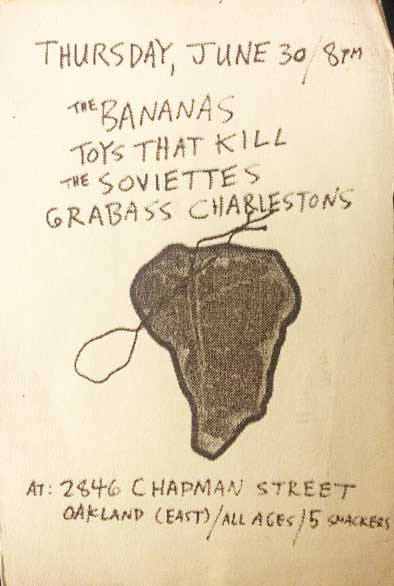 THURSDAY, JUNE 30/8PM
THE BANANAS
TOYS THAT KILL
THE SOVIETTES
GRABASS CHARLESTONS
AT: 2846 CHAPMAN STREET
OAKLAND (EAST)/ALL AGES/5 SMACKERS